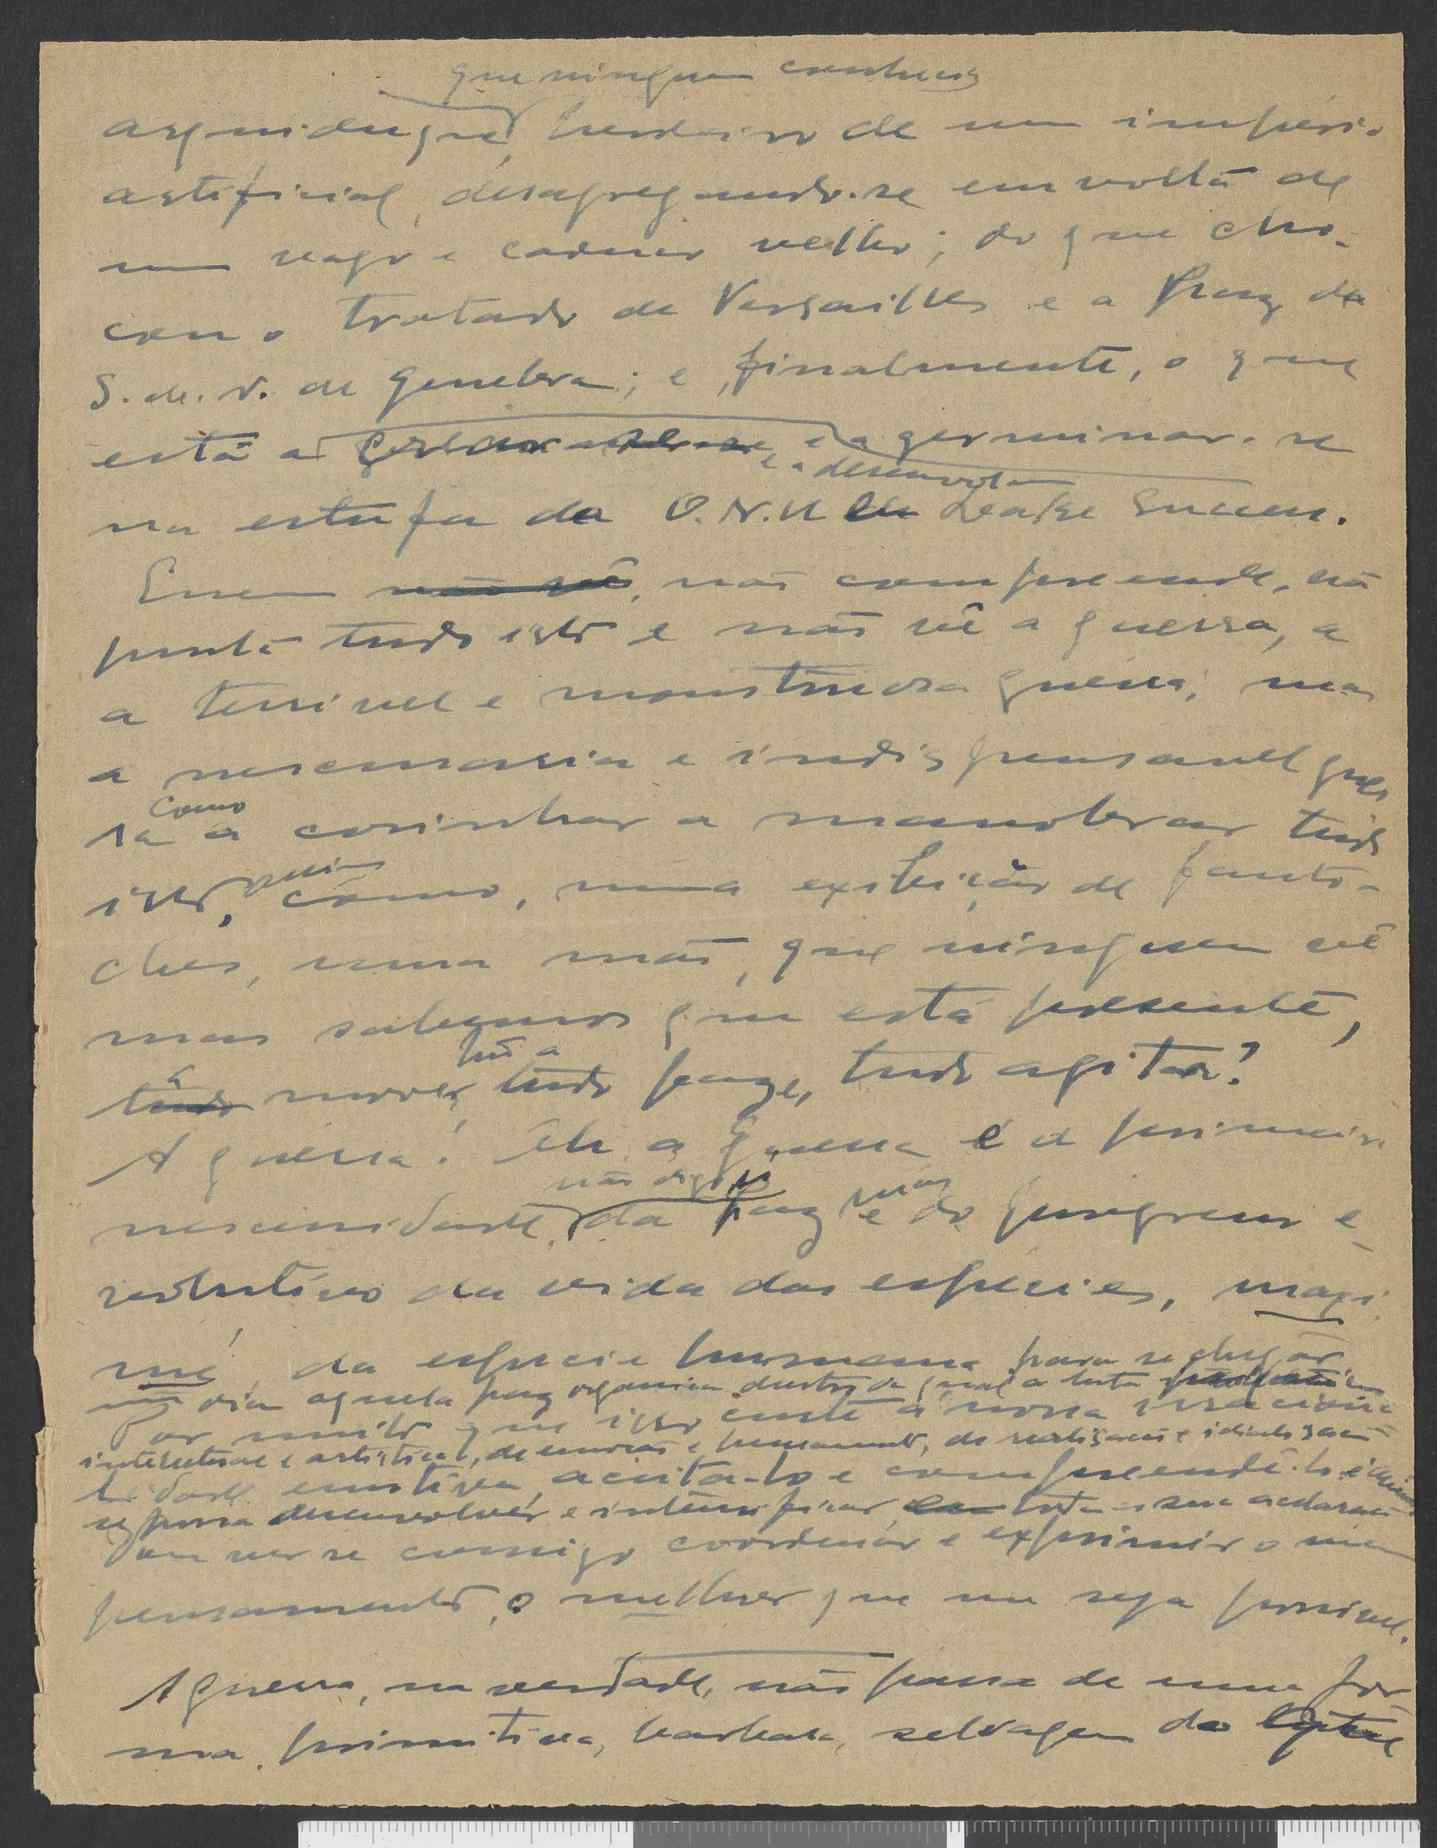 que ninguem conhecia
arquiduque, herdeiro de um imperio
artificial, desagregando-se em volta de
um vago e caduco velho; do que cho-
com o tratado de Versailles e a Paz da
S. de. N. de Genebra; e, finalmente, o que
está a e a germinar-se
e a desenvolver
na estufa da O.N.U Lake Success.
Quem não vê, não compreende, não
tudo isto e não vê a guerra, a
a terrivel e monstruosa guerra; mas
a nescessaria e indispensavel guer
ra como a cosinhar a manobrar tudo
isto, assim como, numa exibição de fanto-
ches, uma mão, que ninguem vê
mas sabemos que está presente,
tudo mover, tudo faze, tudo agitar?
A guerra! Ah a guerra é a primeira
não digo
nescessidade da paz mas e do progresso e-
volutivo da vida das especies, maxi
mé da especie humana para se chegar
um dia aquela paz organica dentro da qual a luta
Por muito que isso custe á nossa irraciona-
intelectual e artistica, de emoção e pensamento, de realisação e idealisação
lidade emotiva, aceita-lo e compreendê-lo é
se possa desenvolver e intensificar, toda a sua
vou ver se consigo coordenar e exprimir o meu
pensamento, o melhor que me seja possivel.
A guerra, na verdade, não passa de uma for
ma primitiva, barbara, selvagem da